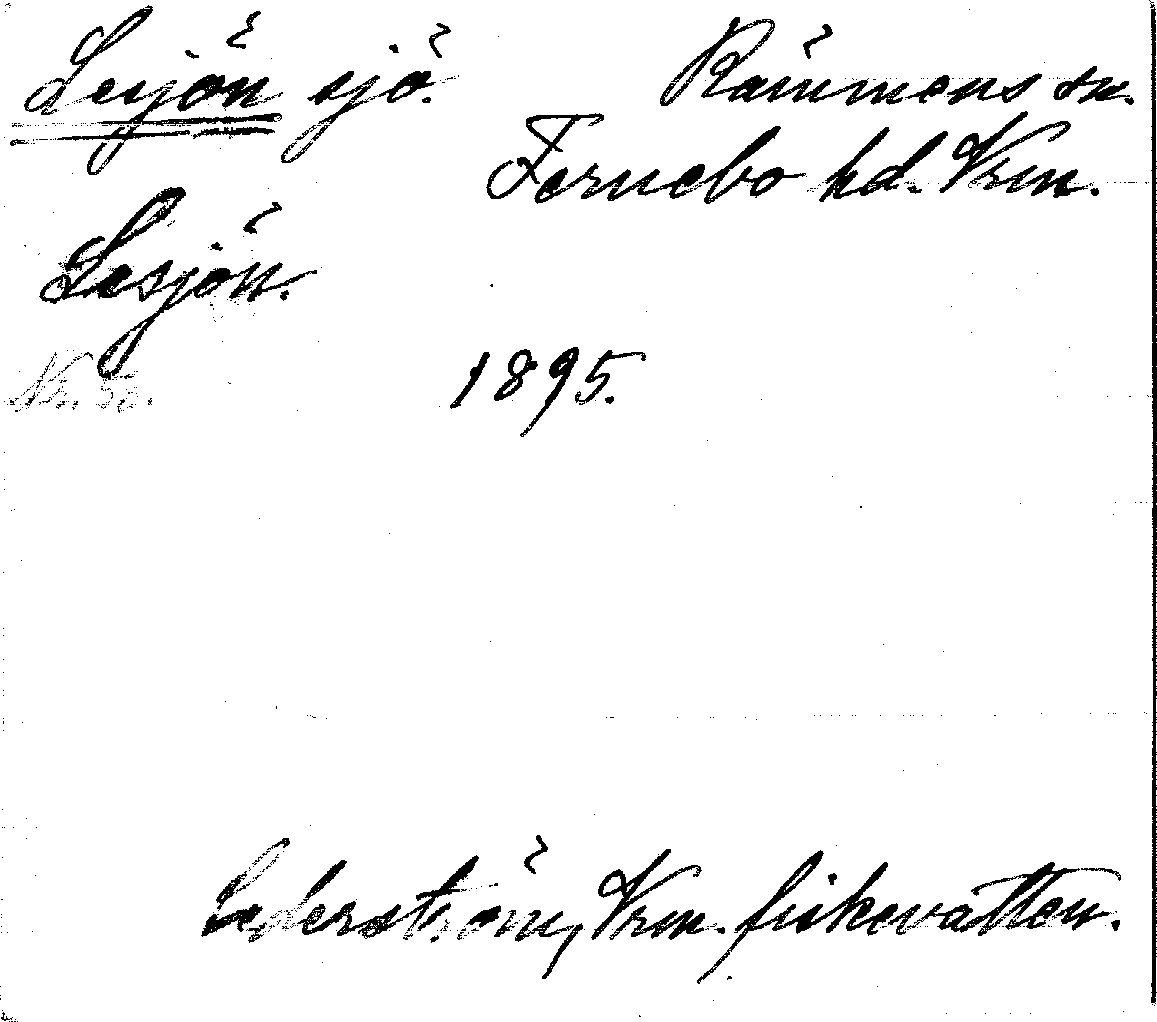 Lesjön sjö. Rämmens sn.
Fernebo hd. Vrm.
Lesjön.
Nr. 52. 1895.
Cederström, Vrm. fiskevatten.